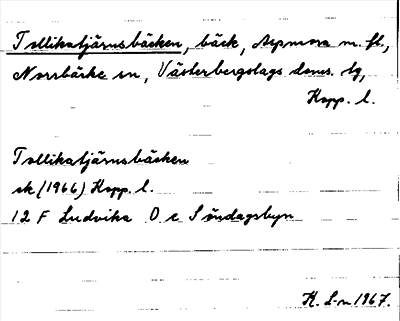 Tollikatjärnsbäcken, bäck, Aspmora m. fl.,
Norrbärke sn, Västerbergslags doms. tg,
Kopp. l.
Tollikatjärnsbäcken
sk (1966) Kopp. l.
12 F Ludvika 0 c Söndagsbyn
K. L-m 1967.